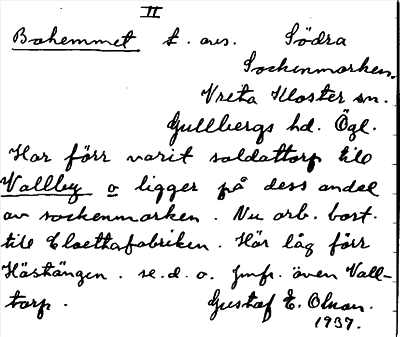 II
Bohemmet t. avs. Södra
Sockenmarken.
Vreta Kloster sn.
Gullbergs hd. Ögl.
Har förr varit soldattorp till
Vallby o ligger på dess andel
av sockenmarken. Nu arb. bost.
till Cloettafabriken. Här låg förr
Hästängen. se. d. o. Jmfr. även Vall-
torp. Gustaf E. Olsson.
1937.